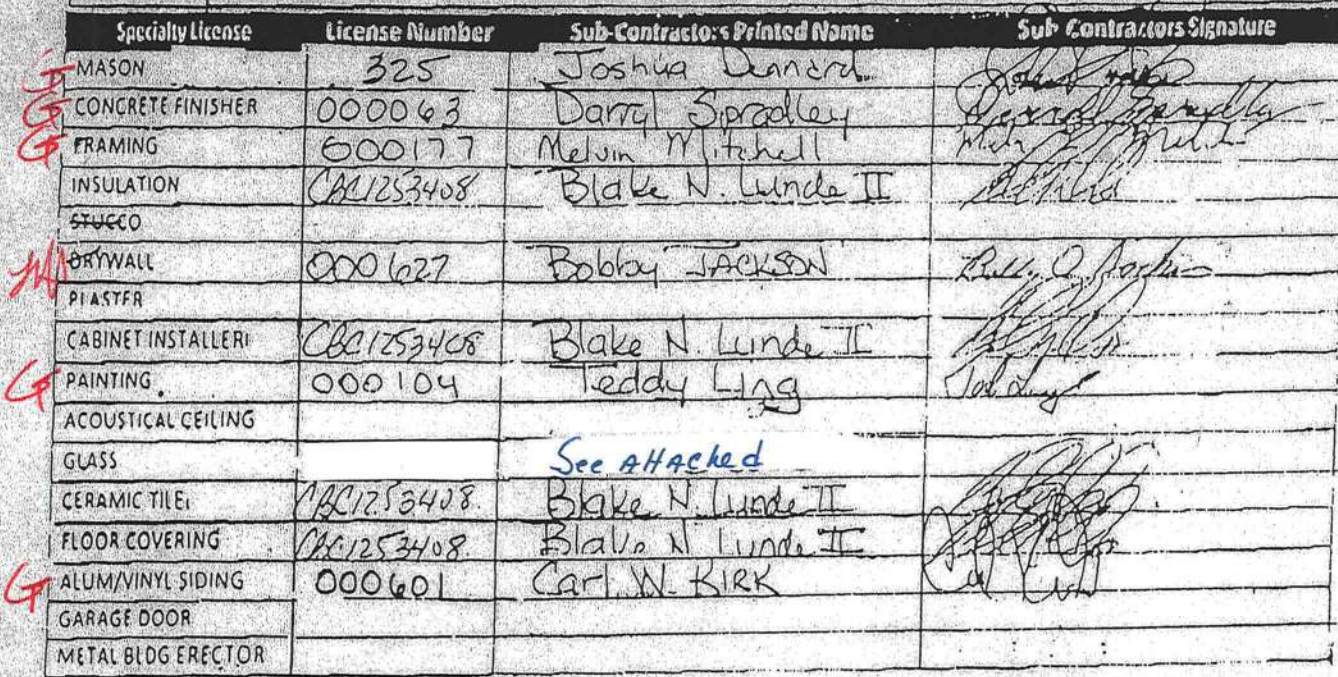 Specialty License License Number Sub-Contractors Printed Name Sub-Contractors Signature
MASON 325 Joshua Dennard
CONCRETE FINISHER 000063 Darryl Spradley
FRAMING 000177 Melvin Mitchell
INSULATION CBC1253408 Blake N. Lunde II
STUCCO
DRYWALL 000627 Bobby JACKSON
PLASTER
CABINET INSTALLER CBC1253408 Blake N. Lunde II
G PAINTING 000104 Teddy Ling
ACOUSTICAL CEILING
GLASS See AttAched
CERAMIC TILE CBC1253408 Blake N. Lunde II
FLOOR COVERING CBC1253408 Blake N Lunde II
G ALUM/VINYL SIDING 000601 Carl W. KIRK
GARAGE DOOR
METAL BLDG ERECTOR